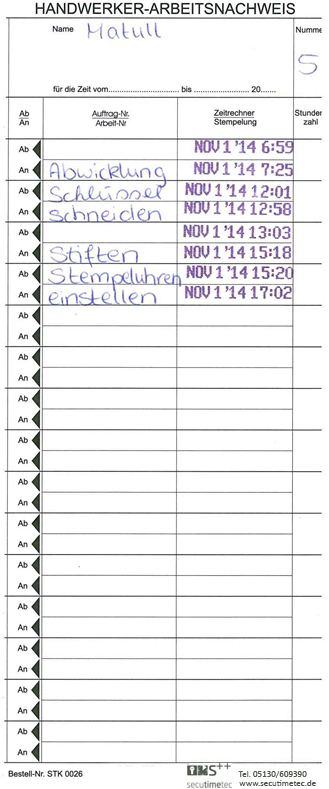 HANDWERKER-ARBEITSNACHWEIS
Name Matull Numme
5
für die Zeit vom.............................. bis ........................ 20.......
Ab An Auftrag-Nr. Arbeit-Nr Zeitrechner Stempelung Stunden zahl
Ab NOV 1 '14 6:59
An Abwicklung NOV 1 '14 7:25
Ab Schlüssel NOV 1 '14 12:01
An schneiden NOV 1 '14 12:58
Ab NOV 1 '14 13:03
An Stiften NOV 1 '14 15:18
Ab Stempeluhren NOV 1 '14 15:20
An einstellen NOV 1 '14 17:02
Ab
An
Ab
An
Ab
An
Ab
An
Ab
An
Ab
An
Ab
An
Ab
An
Ab
An
Ab
An
Ab
An
Bestell-Nr. STK 0026 Tel. 05130/609390
secutimetec www.secutimetec.de